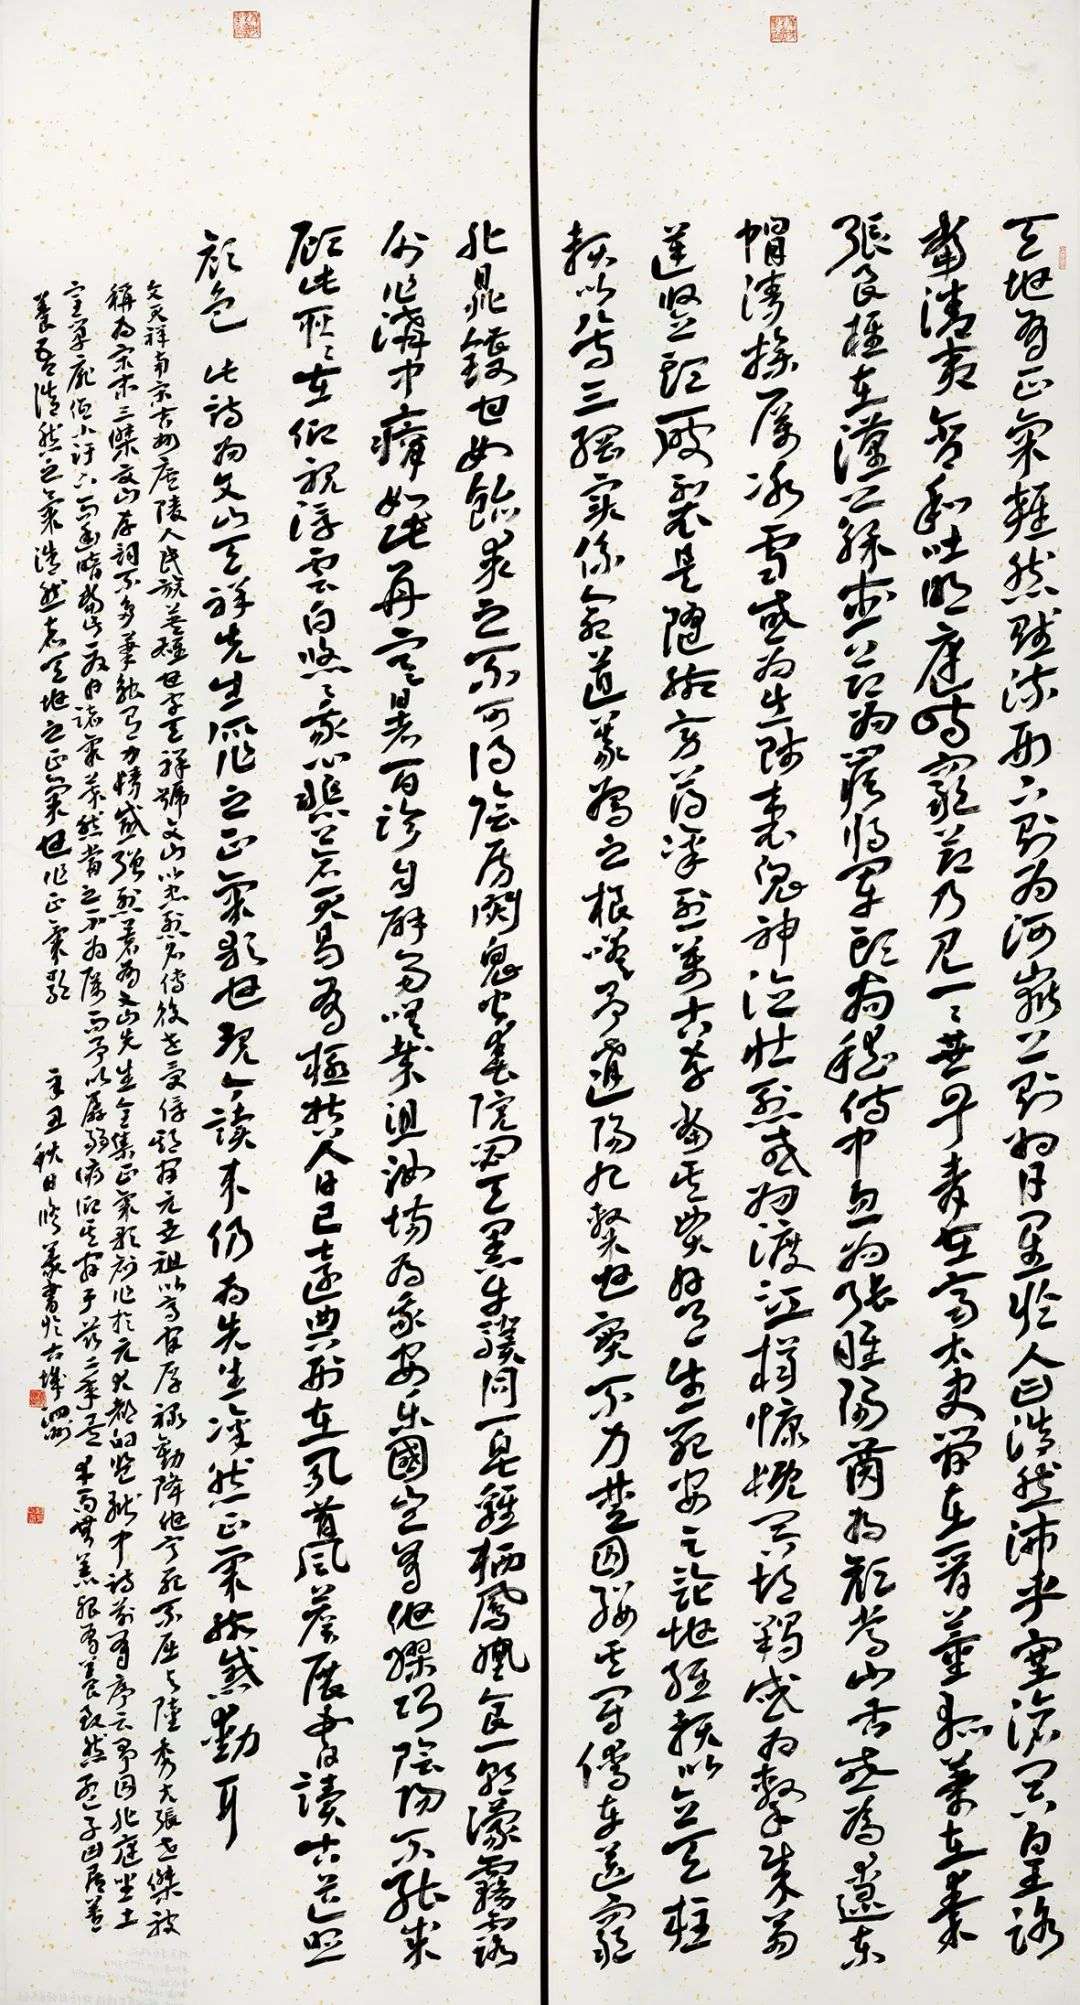 天地有正氣雜然賦流形下則為河嶽上則為日星於人曰浩然沛乎塞滄冥皇路
當清夷含和吐明庭時窮節乃見一一垂丹青在齊太史簡在晉董狐筆在秦
張良椎在漢蘇武節為嚴將軍頭為嵇侍中血為張睢陽齒為顏常山舌或為遼東
帽清操厲冰雪或為出師表鬼神泣壯烈或為渡江楫慷慨吞胡羯或為擊賊笏
逆豎頭破裂是氣所旁薄凜烈萬古存當其貫日月生死安足論地維賴以立天柱
賴以尊三綱實係命道義為之根嗟予遘陽九隸也實不力楚囚纓其冠傳車送窮
北鼎鑊甘如飴求之不可得陰房闃鬼火春院閟天黑牛驥同一皂雞栖鳳凰食一朝濛霧露
分作溝中瘠如此再寒暑百沴自辟易嗟哉沮洳場為我安樂國豈有他繆巧陰陽不能賊
顧此耿耿在仰視浮雲白悠悠我心悲蒼天曷有極哲人日已遠典刑在夙昔風簷展書讀古道照
顏色 此詩為文山天祥先生所作之正氣歌也現今讀來仍為先生凜然正氣所感動耳
文天祥南宋吉州廬陵人民族英雄也字天祥號文山以忠烈名傳後世受俘期間元世祖以高官厚祿勸降他寧死不屈與陸秀夫張世傑被
稱為宋末三傑文山存詞不多筆觸有力情感強烈著有文山先生全集正氣歌創作於元大都的監獄中詩前有序云予囚北庭坐土
室單扉低小汙下而幽暗當此夏日諸氣萃然當之不為厲而予以孱弱俯仰其間于茲二年矣幸而無恙殆有養致然孟子曰吾善
養吾浩然之氣浩然者天地之正氣也作正氣歌 辛丑秋日修義書於古城